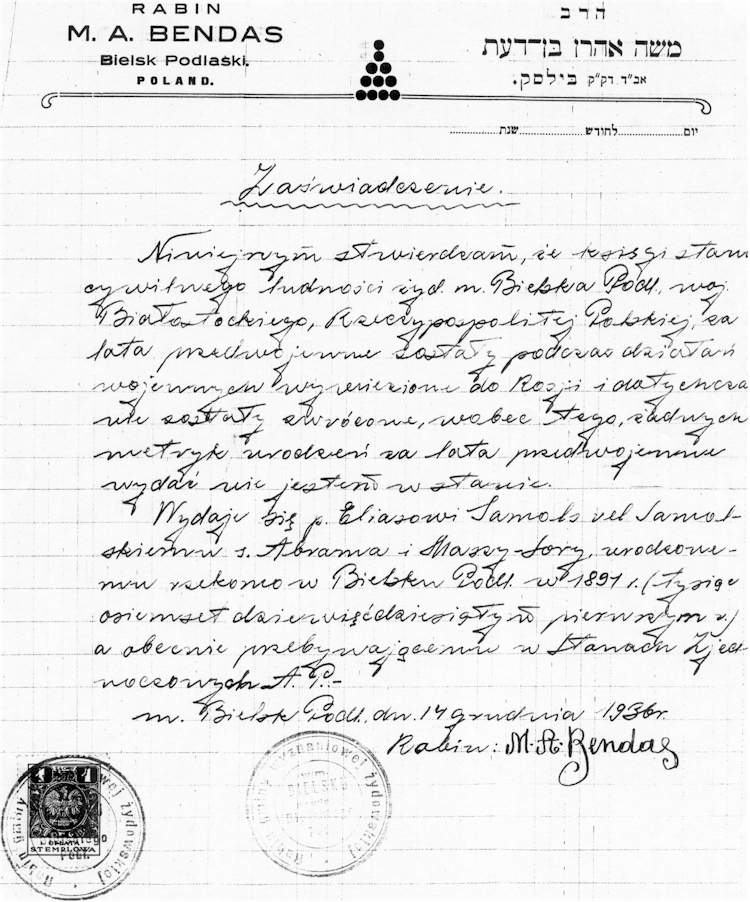 RABIN
M. A. BENDAS
Bielsk Podlaski.
POLAND.
הרב
משה אהרן בן־דעת
אב"ד דק"ק בילסק.
יום ........ לחודש ........ שנת ........
Zaświadczenie.
Niniejszym stwierdzam, że księgi stanu
cywilnego ludności żyd. m. Bielska Podl., woj.
Białostockiego, Rzeczypospolitej Polskiej, za
lata przedwojenne zostały podczas działań
wojennych wywiezione do Rosji i dotychczas
nie zostały zwrócone, wobec tego, żadnych
metryk urodzeń za lata przedwojenne
wydać nie jestem w stanie.
Wydaje się p. Eliasowi Samols vel Samol-
skiemu s. Abrama i Maszy-Sory, urodzone-
mu rzekomo w Bielsku Podl. w 1891 r. (tysiąc
osiemset dziewięćdziesiątym pierwszym r.)
a obecnie przebywającemu w Stanach Zjed-
noczonych A. P.-
m. Bielsk Podl. dn. 14 grudnia 1936 r.
Rabin: M. A. Bendas
1 1
OPŁATA
STEMPLOWA
Rabin gminy wyznaniowej żydowskiej
BIELSKU